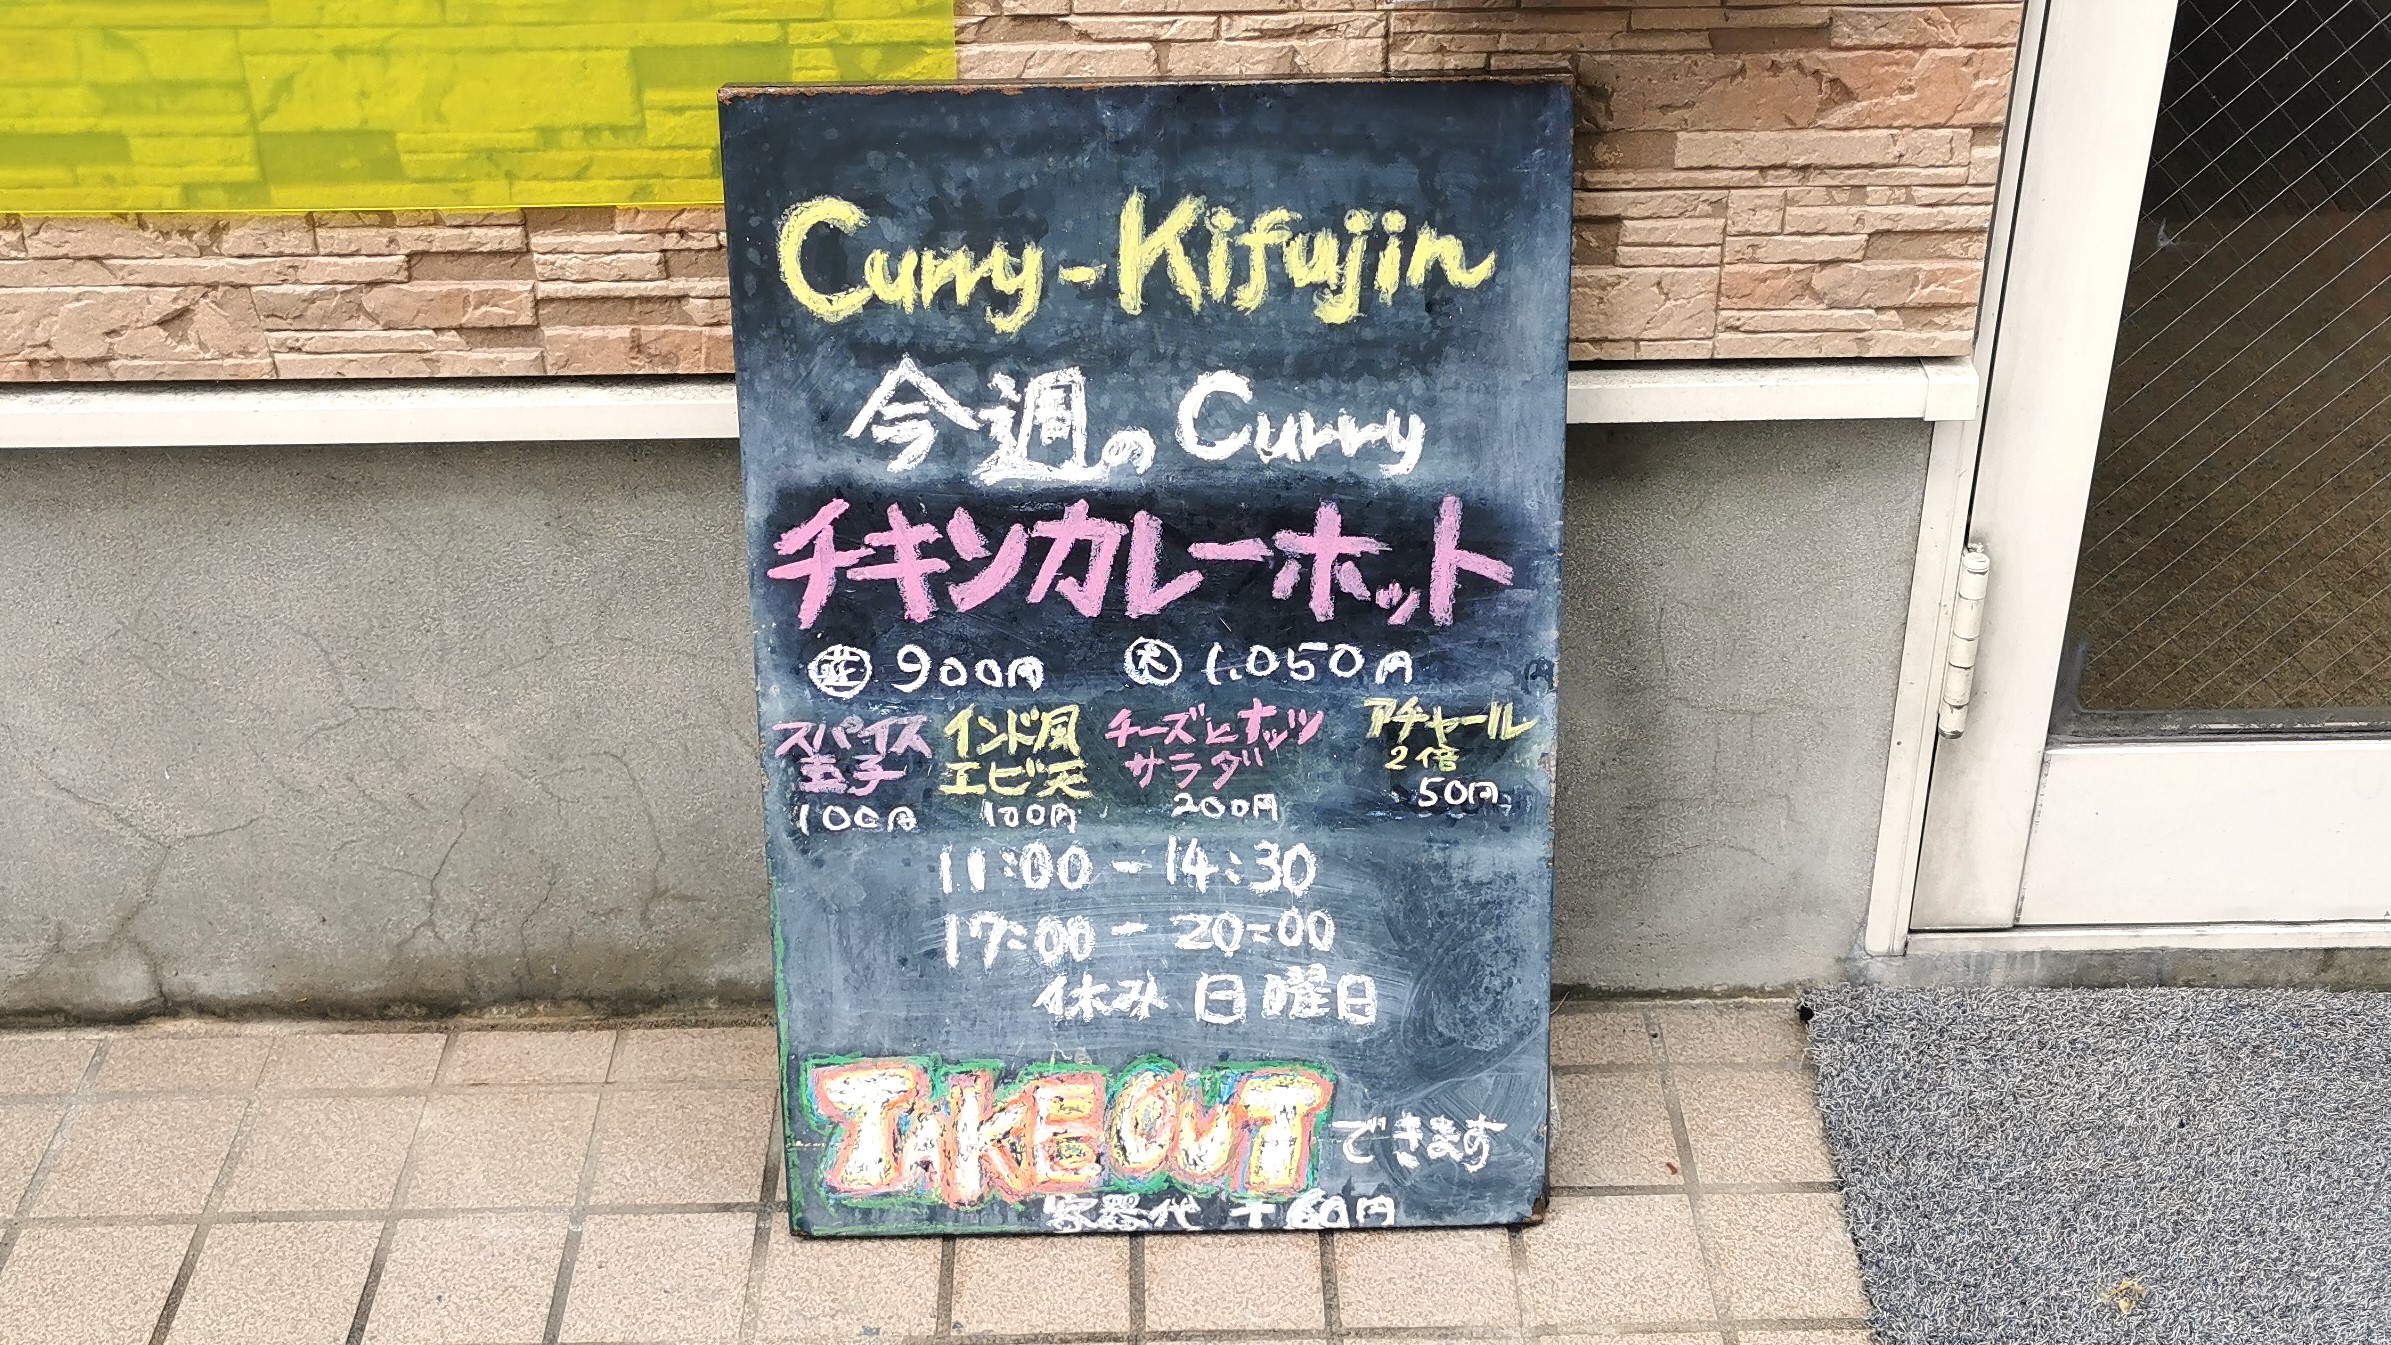 Curry-Kifujin
今週のCurry
チキンカレーホット
並 900円 大 1.050円
スパイス インド風 チーズとナッツ アチャール
玉子 エビ天 サラダ 2倍
100円 100円 200円 50円
11:00-14:30
17:00-20:00
休み 日曜日
TAKEOUT できます
容器代 +60円